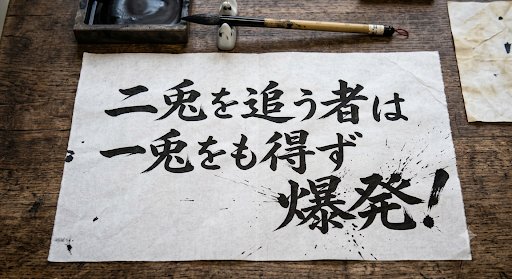 二兎を追う者は
一兎をも得ず
爆発!